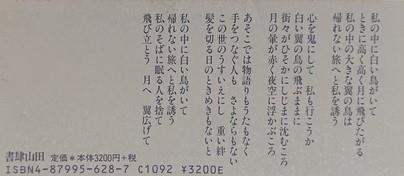 私の中に白い鳥がいて
ときに高く高く月に飛びたがる
私の中の大きな翼の鳥は
帰れない旅へと私を誘う
心を鬼にして 私も行こうか
白い翼の鳥の飛ぶままに
街々がひそかにしじまに沈むころ
月の暈が赤く夜空に浮かぶころ
あそこでは物語りもうたもなく
手をつなぐ人も さよならもない
この世のうすいえにし 重い絆
髪を切る日のときめきもないと
私の中に白い鳥がいて
帰れない旅へと私を誘う
私のそばに眠る人を捨て
飛び立とう 月へ 翼広げて
書肆山田 定価*本体3200円+税
ISBN4-87995-628-7 C1092 ¥3200E